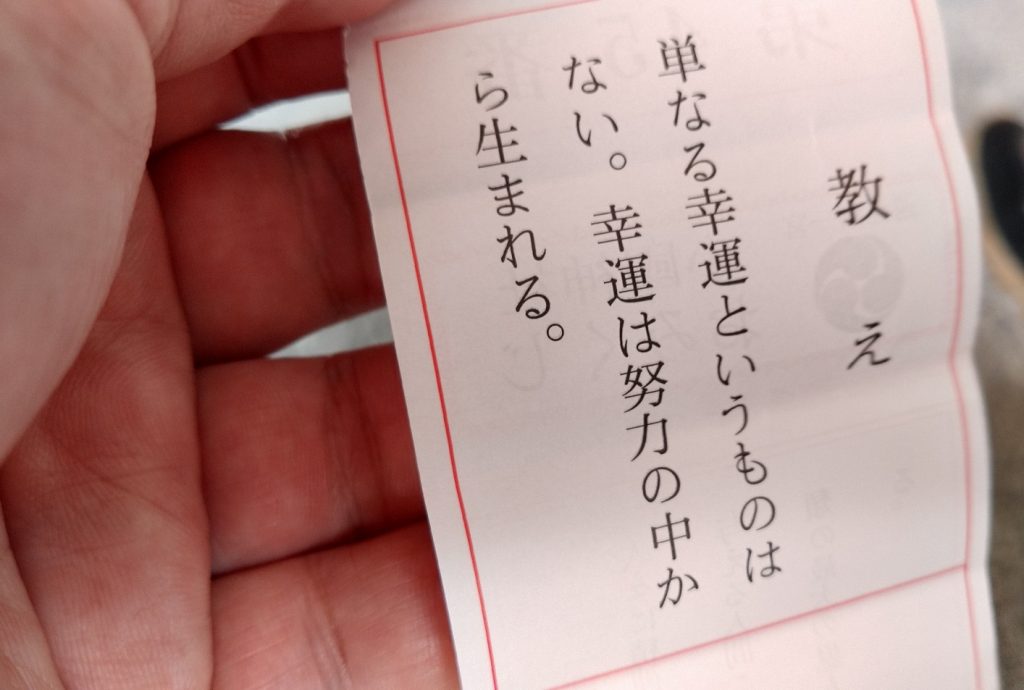 教え
単なる幸運というものは
ない。幸運は努力の中か
ら生まれる。